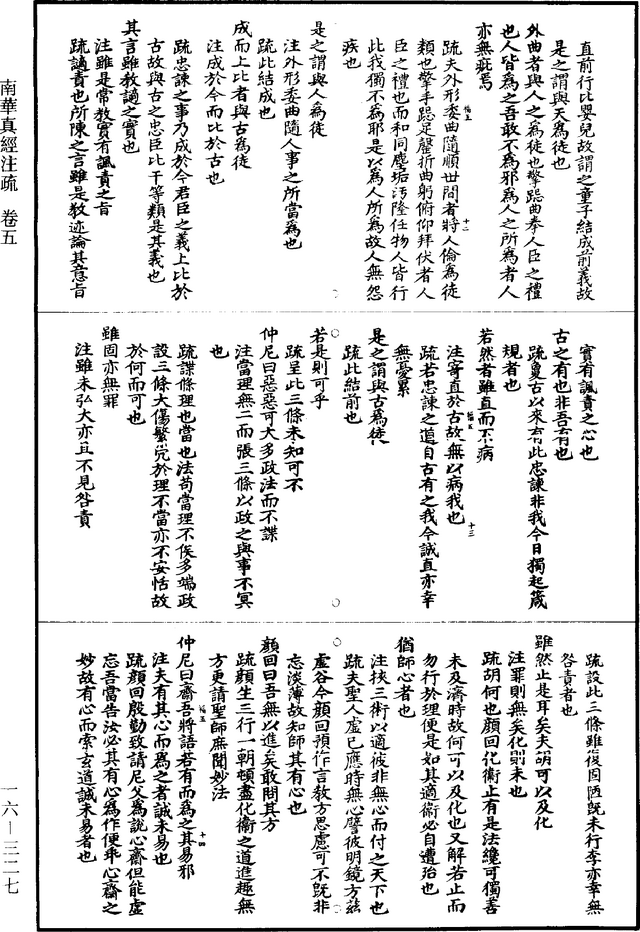 直前行比嬰兒故謂之童子結成前義故
是之謂與天為徒也
外曲者與人之為徒也擎跽曲拳人臣之禮
也人皆為之吾敢不為邪為人之所為者人
亦無疵焉
疏夫外形委曲隨順世間者將人倫為徒
類也擎手跽足磬折曲躬俯仰拜伏者人
臣之禮也而和同塵垢汚隆任物人皆行
此我獨不為耶是以為人所為故人無怨
疾也
是之謂與人為徒
注外形委曲隨人事之所當為也
疏此結成也
成而上比者與古為徒
注成於今而比於古也
疏忠諫之事乃成於今君臣之義上比於
古故與古之忠臣比干等類是其義也
其言雖教讁之實也
注雖是常教實有諷責之旨
疏讁責也所陳之言雖是教迹論其意旨
實有諷責之心也
古之有也非吾有也
疏亘古以來有此忠諫非我今日獨起箴
規者也
若然者雖直而不病
注寄直於古故無以病我也
疏若忠諫之道自古有之我今誠直亦幸
無憂累
是之謂與古為徒
疏此結前也
若是則可乎
疏呈此三條未知可不
仲尼曰惡惡可大多政法而不諜
注當理無二而張三條以政之與事不冥
也
疏諜條理也當也法苟當理不俟多端政
設三條大傷繁冗於理不當亦不安恬故
於何而可也
雖固亦無罪
注雖未弘大亦且不見咎責
疏設此三條雖復固陋既未行李亦幸無
咎責者也
雖然止是耳矣夫胡可以及化
注罪則無矣化則未也
疏胡何也顏回化衞止有是法纔可獨善
未及濟時故何可以及化也又解若止而
勿行於理便是如其適衞必自遭殆也
猶師心者也
注挾三術以適彼非無心而付之天下也
疏夫聖人虛己應時無心譬彼明鏡方茲
虛谷今顏回預作言教方思慮可不既非
忘淡薄故知師其有心也
顏回曰吾無以進矣敢問其方
疏顏生三行一朝頓盡化衞之道進趣無
方更請聖師庶聞妙法
仲尼曰齋吾將語若有而為之其易邪
注夫有其心而為之者誠未易也
疏顏回殷勤致請尼父為說心齋但能虛
忘吾當告汝必其有心為作便乖心齋之
妙故有心而索玄道誠未易者也
南華真經注疏　卷五
一六—三二七